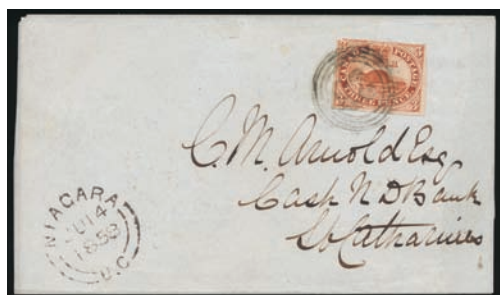 CANADA POSTAGE
THREE PENCE
C. M. Arnold Esq
Cash N D Bank
St Catharines
NIAGARA
JU 14
1858
U.C